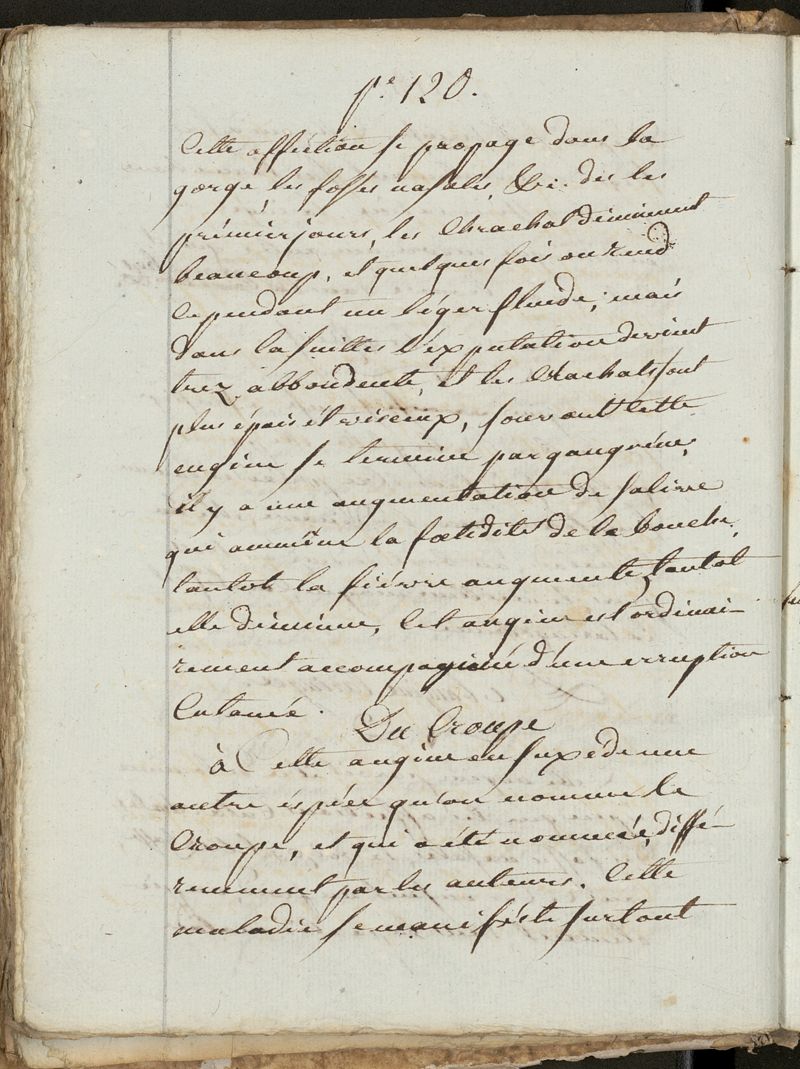 pe. 120.
Cette affection se propage dans la
gorge, les fosses nasales, &c. dès les
prémier jours, les Chrachat diminuent
beaucoup, et quelques fois on rend
Cependant un léger fluide; mais
dans la suitte l'exputation devient
trez abbondente, et les Crachats sont
plus épais ét viscieux, souvant Cette
engine se termine par gangréne,
il y a une augmentation de salive
qui amméne la foetidité de la bouche,
tantot la fiévre augmente, tantot
elle diminue, Cet angine est ordinai-
rement accompagnié d'une erruption
Cutanée.
Du Croupe
à Cette angine en suxede une
autre éspéce qu'on nomme le
Croupe, et qui a été nommée, diffé-
remment par les auteurs. Cette
maladie se manifeste surtout